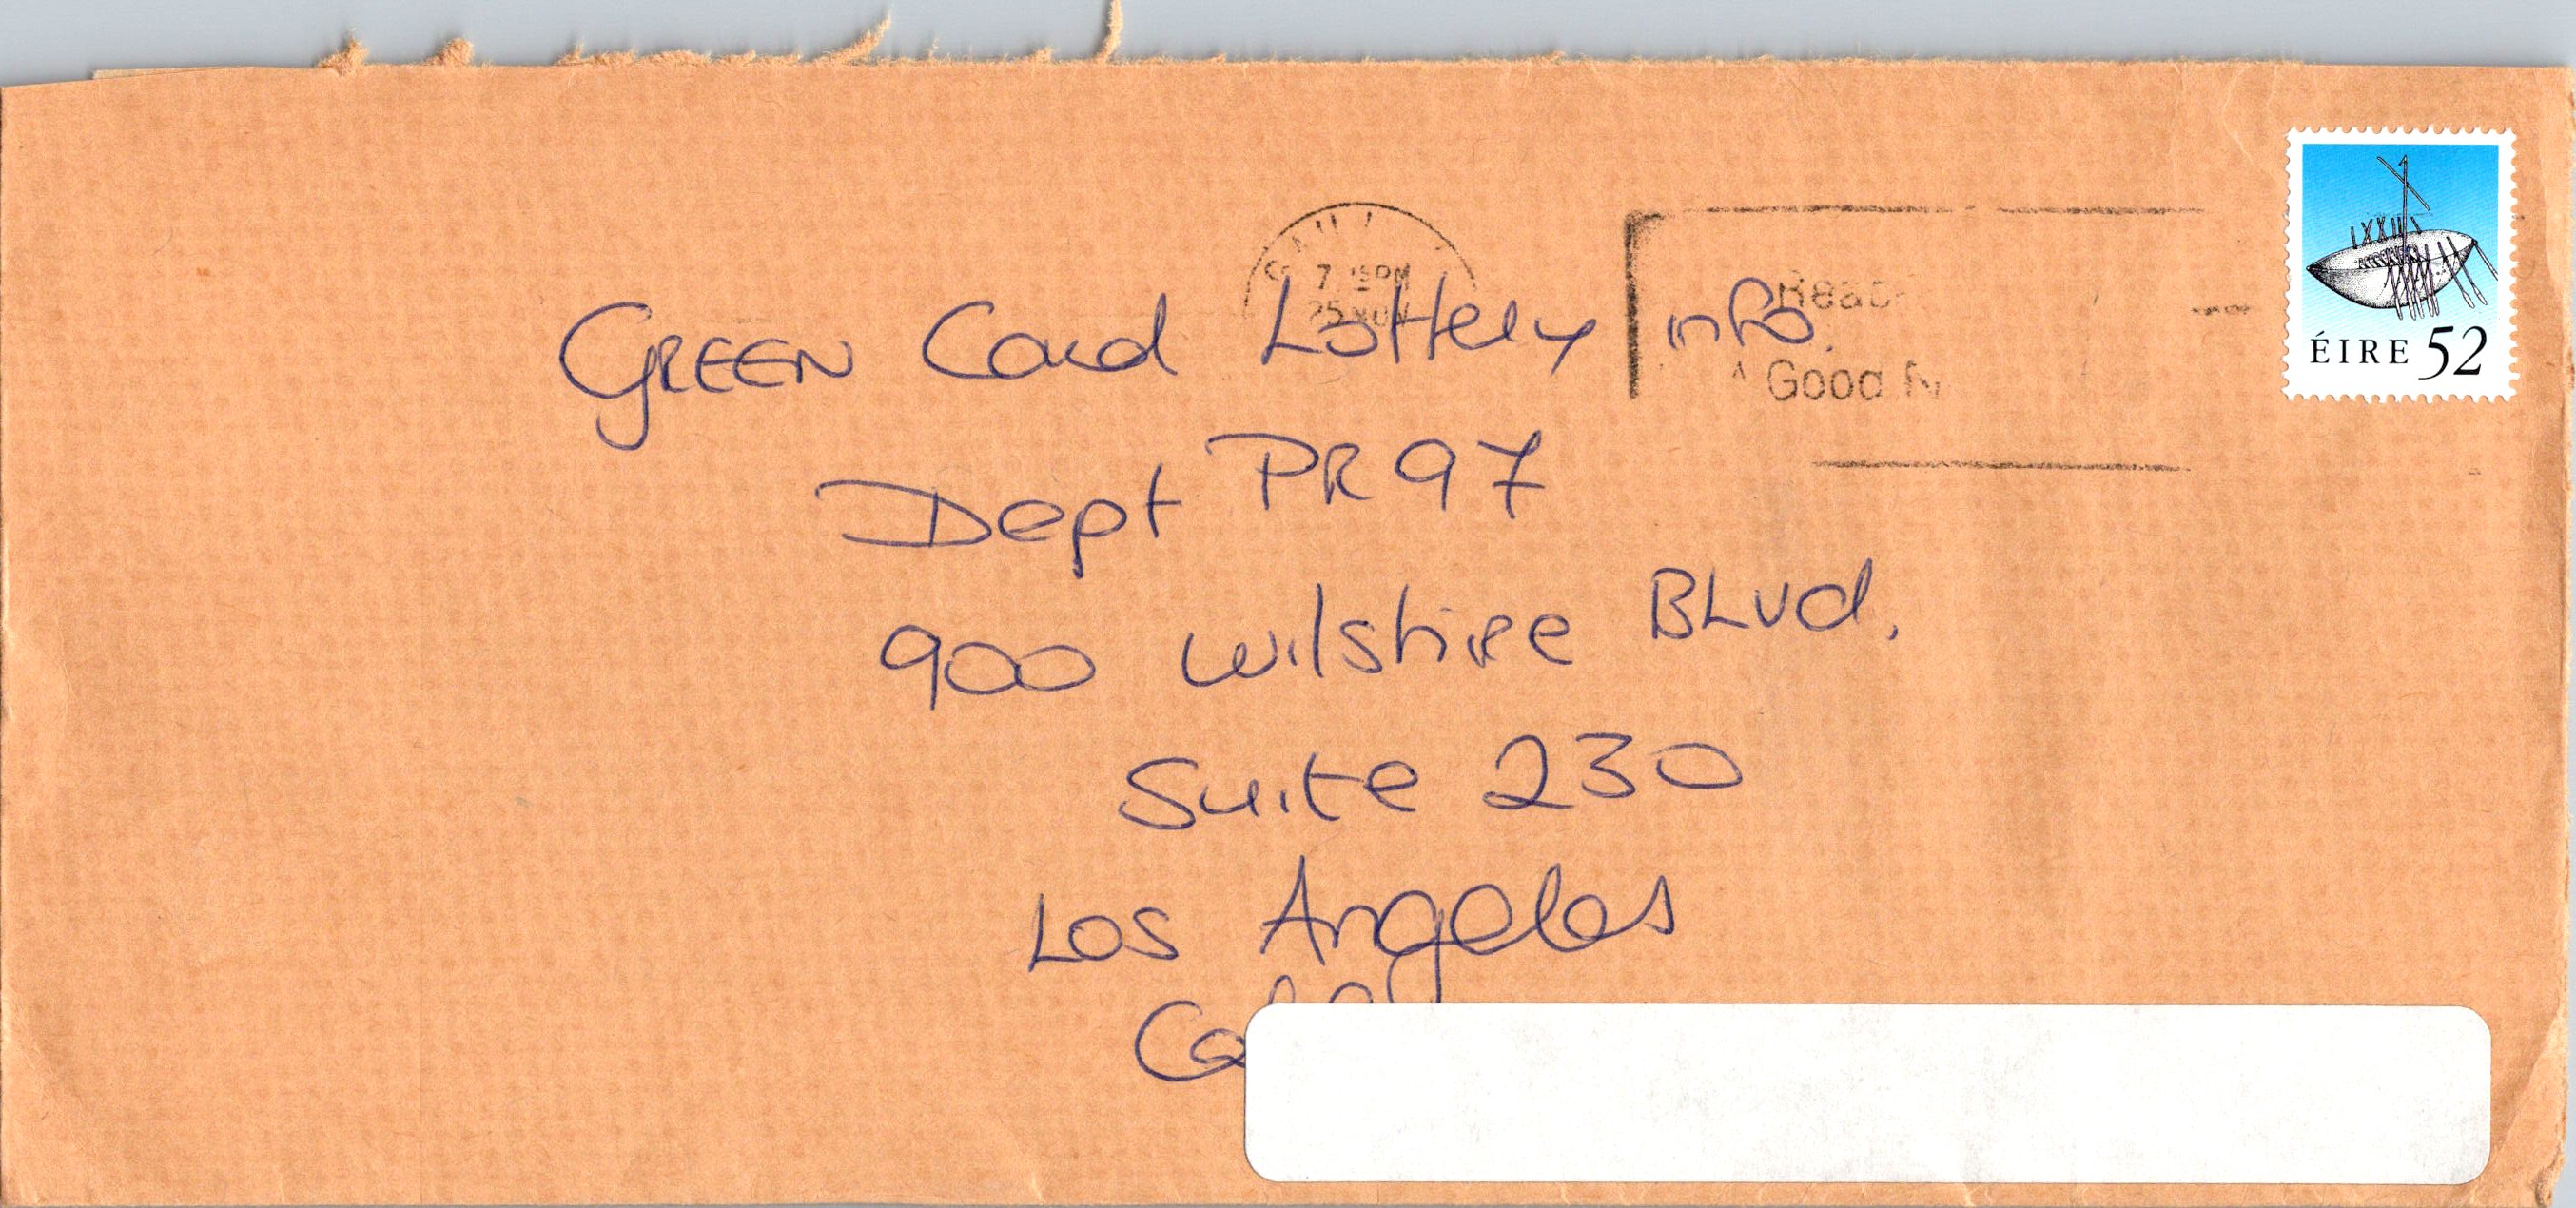 7. 15PM
25 NOV
Reac
A Good
ÉIRE 52
GREEN Card Lottery info.
Dept PR97
900 Wilshire BLvd.
Suite 230
Los Angeles